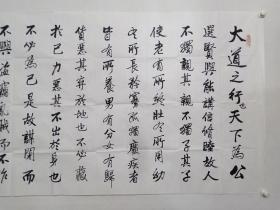 大道之行也天下為公
選賢與能講信脩睦故人
不獨親其親不獨子其子
使老有所終壯有所用幼
有所長矜寡孤獨廢疾者
皆有所養男有分女有歸
貨惡其棄於地也不必藏
於己力惡其不出於身也
不必為己是故謀閉而
不興盜竊亂賊而不作